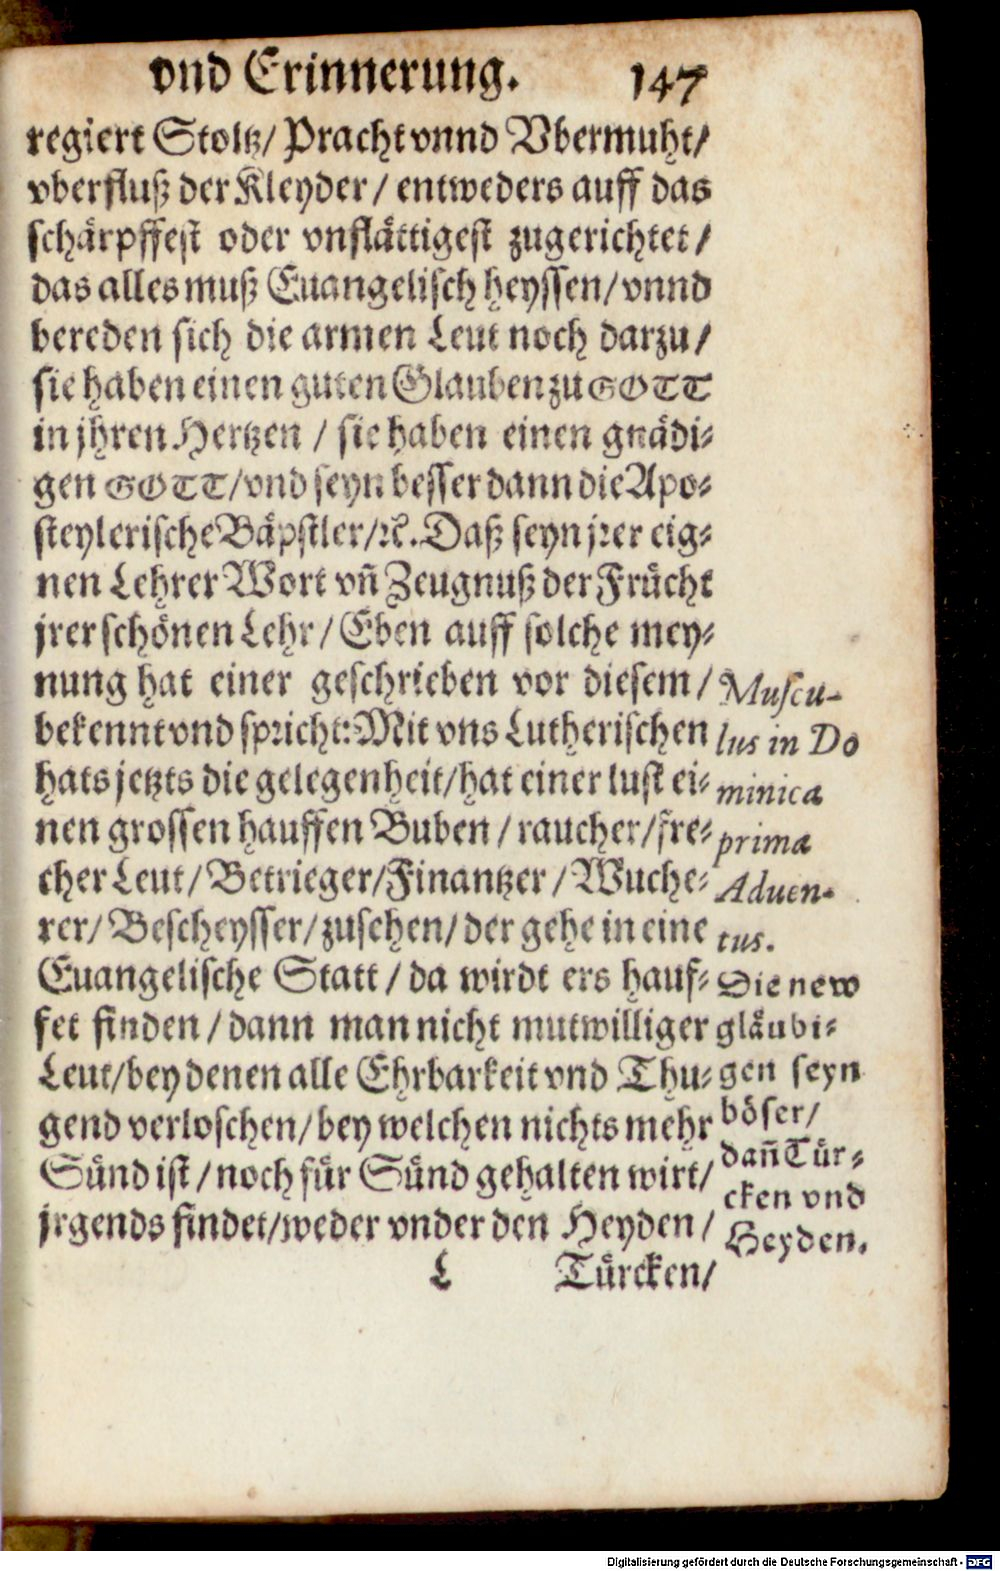 vnd Erinnerung. 147
regiert Stoltz/ Pracht vnnd Vbermuht/
vberfluß der Kleyder/ entweders auff das
schärpffest oder vnflättigest zugerichtet/
das alles muß Euangelisch heyssen/ vnnd
bereden sich die armen Leut noch darzu/
sie haben einen guten Glauben zu GOTT
in jhren Hertzen / sie haben einen gnädi-
gen GOTT/ vnd seyn besser dann die Apo-
steylerische Bäpstler/ ꝛc. Daß seyn jrer eig-
nen Lehrer Wort vñ Zeugnuß der Frücht
jrer schönen Lehr/ Eben auff solche mey-
nung hat einer geschrieben vor diesem/
bekennt vnd spricht: Mit vns Lutherischen
hats jetzts die gelegenheit/ hat einer lust ei-
nen grossen hauffen Buben/ raucher/ fre-
cher Leut/ Betrieger/ Finantzer/ Wuche-
rer/ Bescheysser/ zusehen/ der gehe in eine
Euangelische Statt/ da wirdt ers hauf-
fet finden/ dann man nicht mutwilliger
Leut/ bey denen alle Ehrbarkeit vnd Thu-
gend verloschen/ bey welchen nichts mehr
Sünd ist/ noch für Sünd gehalten wirt/
jrgends findet/ weder vnder den Heyden/
L Türcken/
Muscu-
lus in Do
minica
prima
Aduen-
tus.
Die new
gläubi-
gen seyn
böser/
dañ Tür-
cken vnd
Heyden.
Digitalisierung gefördert durch die Deutsche Forschungsgemeinschaft - DFG